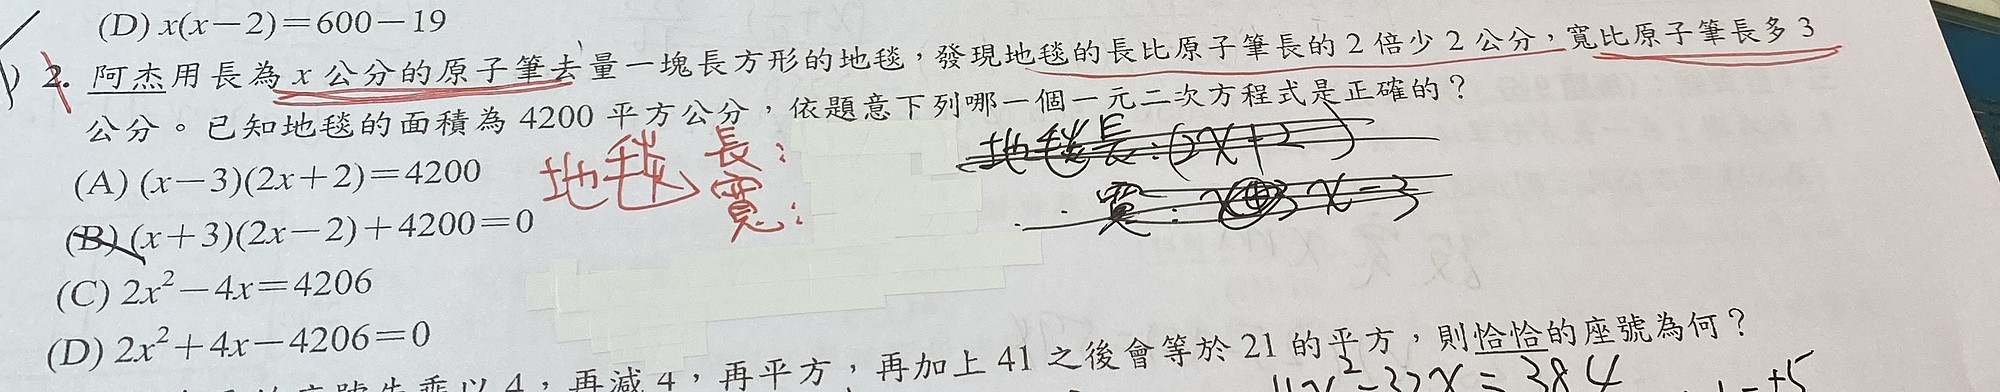 (D) x(x−2)=600−19
2. 阿杰用長為 x 公分的原子筆去量一塊長方形的地毯，發現地毯的長比原子筆長的 2 倍少 2 公分，寬比原子筆長多 3
公分。已知地毯的面積為 4200 平方公分，依題意下列哪一個一元二次方程式是正確的？
地毯 長：
寬：
地毯長：(2x+2)
寬： x−3
(A) (x−3)(2x+2)=4200
(B) (x+3)(2x−2)+4200=0
(C) 2x²−4x=4206
(D) 2x²+4x−4206=0
4，再減 4，再平方，再加上 41 之後會等於 21 的平方，則恰恰的座號為何？